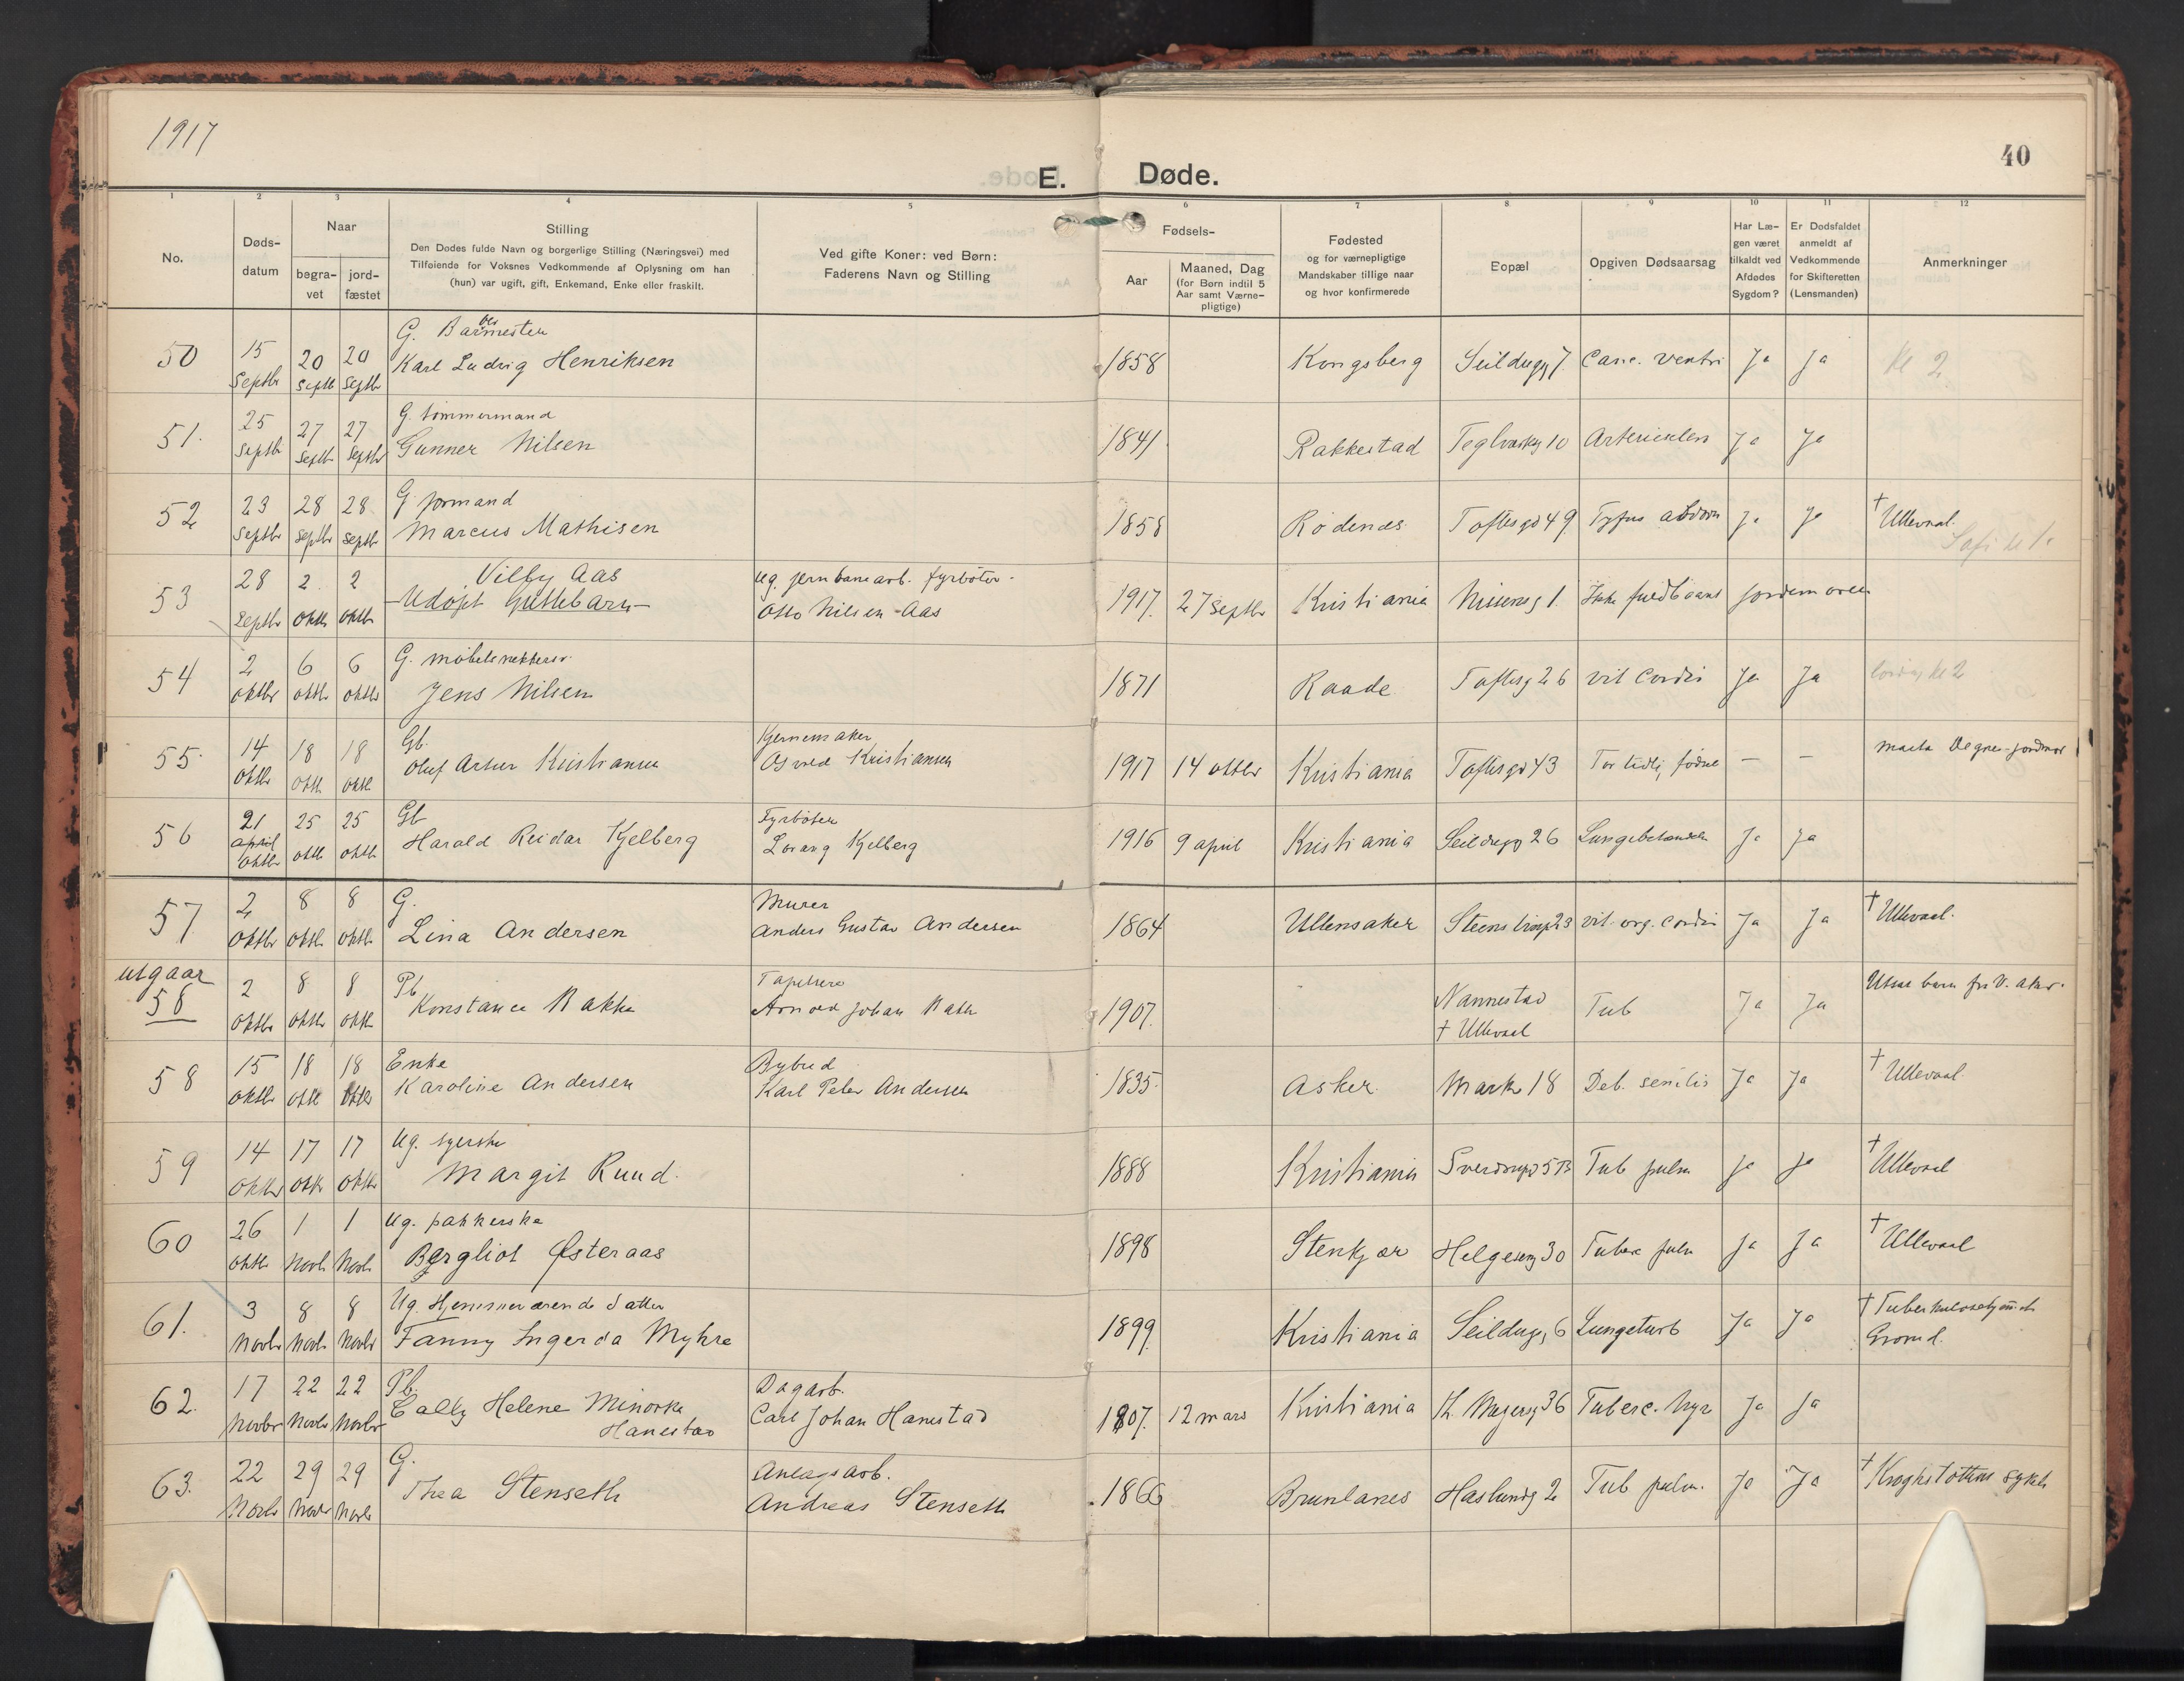 1917
40
E. Døde.
1 2 3 4 5 6 7 8 9 10 11 12
No.
Døds-
datum
Naar
begra-
vet
jord-
fæstet
Stilling
Den Dødes fulde Navn og borgerlige Stilling (Næringsvei) med
Tilføiende for Voksnes Vedkommende af Oplysning om han
(hun) var ugift, gift, Enkemand, Enke eller fraskilt.
Ved gifte Koner: ved Børn:
Faderens Navn og Stilling
Fødsels-
Aar
Maaned, Dag
(for Børn indtil 5
Aar samt Værne-
pligtige)
Fødested
og for værnepligtige
Mandskaber tillige naar
og hvor konfirmerede
Bopæl
Opgiven Dødsaarsag
Har Læ-
gen været
tilkaldt ved
Afdødes
Sygdom?
Er Dødsfaldet
anmeldt af
Vedkommende
for Skifteretten
(Lensmanden)
Anmerkninger
50 15 Septbr 20 Septb 20 Septbr G.
Karl Ludvig Henriksen 1858 Kongsberg Seildugg 7. Canc. ventri Ja Ja Kl 2
51. 25 Septbr 27 Septbr 27 Septbr G. tømmermand
Gunner Nilsen 1841 Rakkestad 10 Ja Ja
52 23 Septbr 28 Septbr 28 Septbr G formand
Marcus Mathisen 1858 Rødenæs Toftesgd 49 Tyfus abdom Ja Ja † Ullevaal.
53 28 Septbr 2 Oktb 2 Oktbr Vilby Aas
Udøpt Guttebarn
ug. jernbanearb. fyrbøter.
Otto Nilsen-Aas 1917. 27 Septbr Kristiania 1. Ikke fuldbaaret Jordemoren
54 2 Oktbr 6 Oktb 6 Oktbr G. møbelsnekkersv.
Jens Nilsen 1871 Raade Toftesg 26 vit cordis Ja Ja kl 2
55. 14 Oktbr 18 Oktb 18 Oktb Gb.
Oluf Artur Kristiansen
Osvald Kristiansen 1917 14 oktbr Kristiania Toftesgd 43 For tidlig fødsel – –
56 21 april Oktbr 25 Oktb 25 Oktbr Gb
Harald Reidar Kjelberg
Fyrbøter
Lorang Kjelberg 1916 9 april Kristiania Seildugsg 26 Ja Ja
57 2 Oktbr 8 Oktb 8 Oktbr G.
Lina Andersen
Murer
Anders Gustav Andersen 1864 Ullensaker 23 vit. org. cordis Ja Ja † Ullevaal.
utgaar
58 2 Oktbr 8 Oktb 8 Oktb Pb
Konstance Bakke
Arnold Johan Bakke 1907. Nannestad
† Ullevaal Tub Ja Ja
58 15 Oktbr 18 Oktb 18 Oktbr Enke
Karoline Andersen
Bybud
Karl Peter Andersen 1835. Asker. Markv 18 Deb. senilis Ja Ja † Ullevaal
59 14 Oktbr 17 Oktb 17 Oktbr Ug. syerske
Margit Ruud. 1888 Kristiania Sverdrupsg 5B Tub pulm Ja Ja † Ullevaal
60 26 Oktb 1 Novb 1 Novb Ug. pakkerske
Bergliot Østeraas 1898 Stenkjær Helgesensg 30 Tuberc pulm Ja Ja † Ullevaal
61. 3 Novbr 8 Novb 8 Novbr Ug. Hjemmeværende datter
Fanny Ingerda Myhre 1899. Kristiania Seildugsg 6 Lungetub Ja Ja † Tuberkulosehjemmet
Grorud.
62. 17 Novbr 22 Novbr 22 Novbr Pb.
Helene
Hanestad
Dagarb.
Carl Johan Hanestad 1907. 12 mars Kristiania Th. Meyersg 36 Ja Ja
63. 22 Novbr 29 Novbr 29 Novbr G.
Thea Stenseth
Anlægsarb.
Andreas Stenseth 1866 Brunlanes Haslundg 2 Tub pulm. Ja Ja † Kroghstøttens sykeh